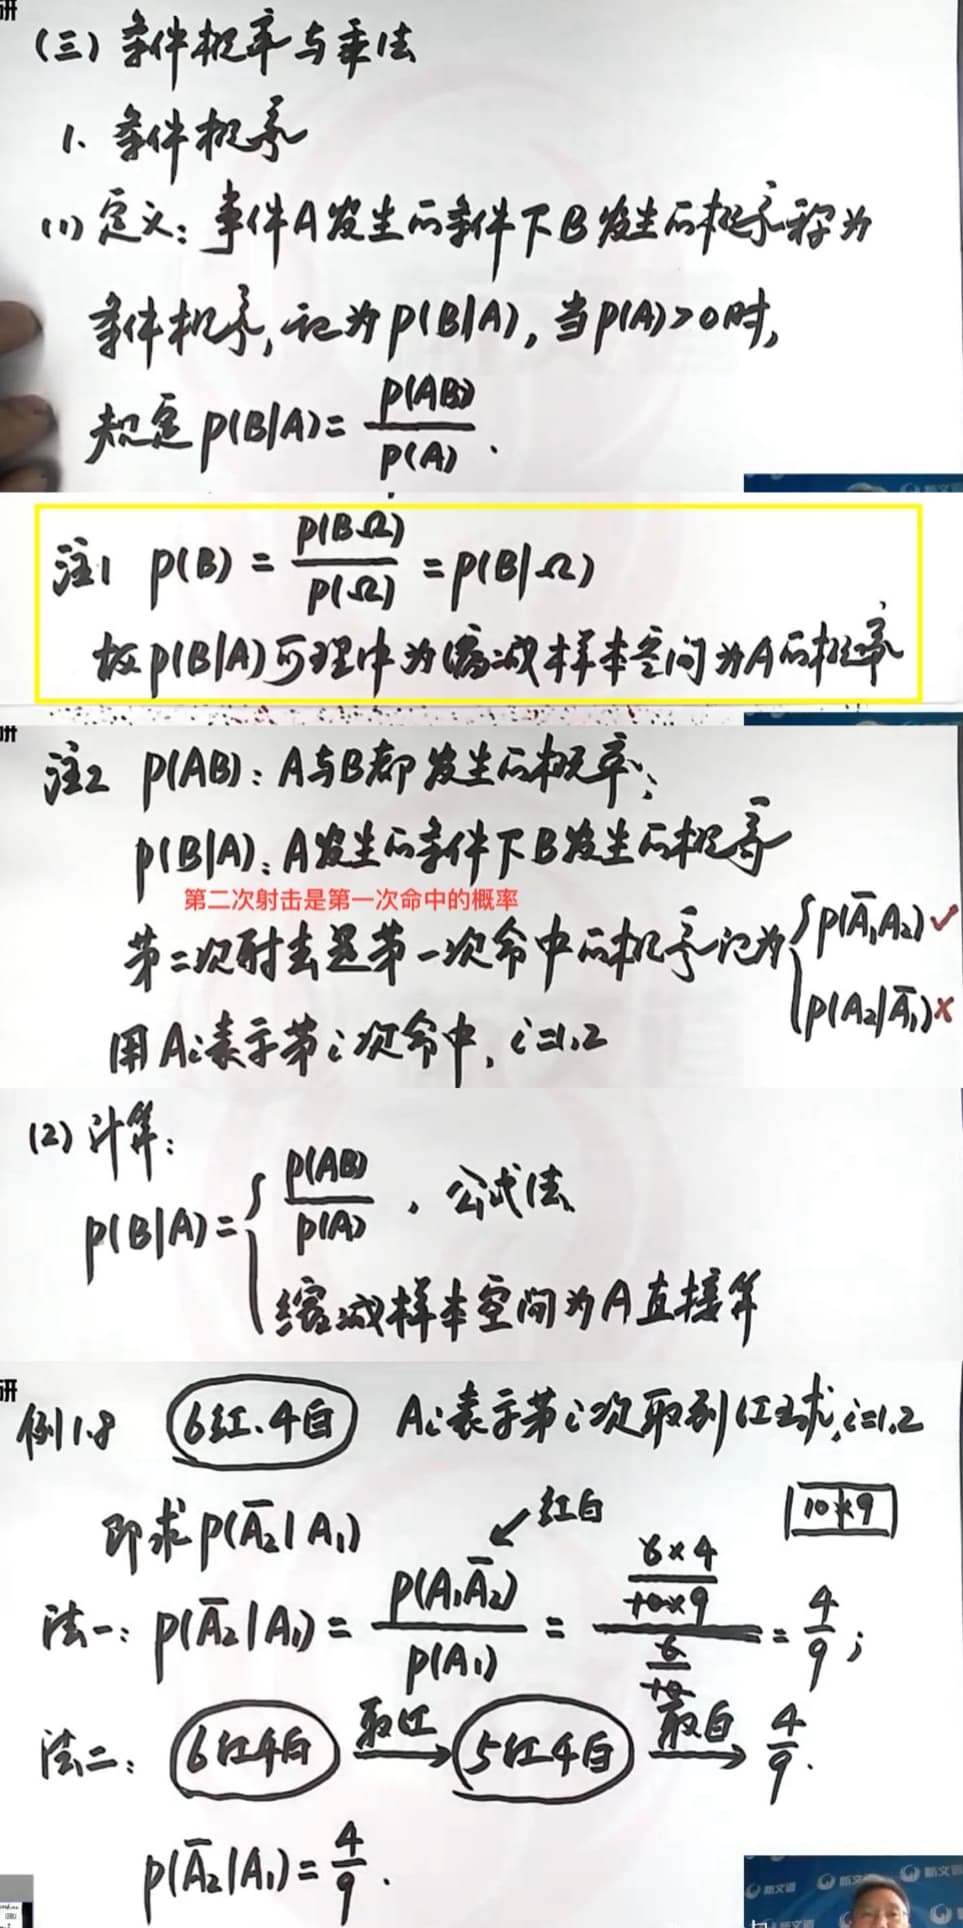 研
(三) 条件概率与乘法
1. 条件概率
(1) 定义: 事件A发生的条件下B发生的概率称为
条件概率, 记为 P(B|A), 当P(A)>0时,
规定 P(B|A) = P(AB) / P(A) .
注1 P(B) = P(BΩ) / P(Ω) = P(B|Ω)
故P(B|A)可理解为缩减样本空间为A的概率
研
注2 P(AB): A与B都发生的概率;
P(B|A): A发生的条件下B发生的概率
第二次射击是第一次命中的概率
第二次射击是第一次命中的概率记为 { P(A̅₁A₂) ✓
P(A₂|A̅₁) ×
用Aᵢ表示第i次命中, i=1,2
(2) 计算:
P(B|A) = { P(AB) / P(A) , 公式法
缩减样本空间为A直接算
研
例1.8 6红、4白 Aᵢ表示第i次取到红球, i=1,2
即求P(A̅₂|A₁) 红白 10×9
法一: P(A̅₂|A₁) = P(A₁A̅₂) / P(A₁) = (6×4 / 10×9) / (6 / 10) = 4/9 ;
法二: 6红4白 取红 → 5红4白 取白 → 4/9 .
P(A̅₂|A₁) = 4/9 .
新文道